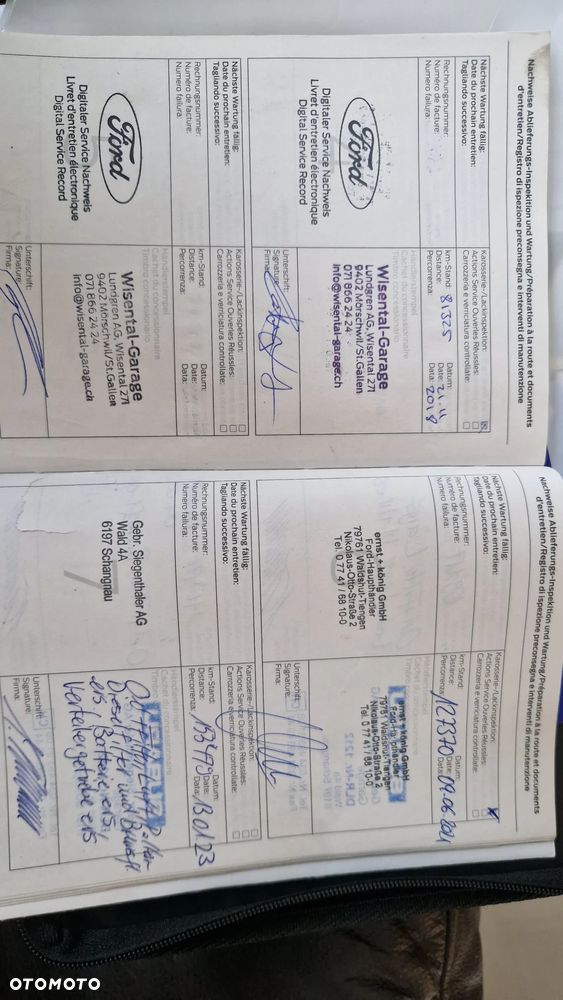 Nachweise Ablieferungs-Inspektion und Wartung/Préparation à la route et documents
d'entretien/Registro di ispezione preconsegna e interventi di manutenzione
Nächste Wartung fällig:
Date du prochain entretien:
Tagliando successivo:
Rechnungsnummer:
Numéro de facture:
Numero fattura:
Ford
Digitaler Service Nachweis
Livret d'entretien électronique
Digital Service Record
Karosserie-/Lackinspektion:
Actions Service Ouvertes Réussies:
Carrozzeria e verniciatura controllate:
km-Stand: 81325
Distance:
Percorrenza:
Datum:
Date: 21.11
Data: 2018
Händlerstempel
Cachet du concessionnaire
Timbro concessionario
Wisental-Garage
Lundgren AG, Wisental 271
9402 Mörschwil/St.Gallen
071 866 24 24
info@wisental-garage.ch
Unterschrift:
Signature:
Firma:
Nächste Wartung fällig:
Date du prochain entretien:
Tagliando successivo:
Rechnungsnummer:
Numéro de facture:
Numero fattura:
Ford
Digitaler Service Nachweis
Livret d'entretien électronique
Digital Service Record
Karosserie-/Lackinspektion:
Actions Service Ouvertes Réussies:
Carrozzeria e verniciatura controllate:
km-Stand:
Distance:
Percorrenza:
Datum:
Date:
Data:
Händlerstempel
Cachet du concessionnaire
Timbro concessionario
Wisental-Garage
Lundgren AG, Wisental 271
9402 Mörschwil/St.Gallen
071 866 24 24
info@wisental-garage.ch
Unterschrift:
Signature:
Firma:
Nachweise Ablieferungs-Inspektion und Wartung/Préparation à la route et documents
d'entretien/Registro di ispezione preconsegna e interventi di manutenzione
Nächste Wartung fällig:
Date du prochain entretien:
Tagliando successivo:
Rechnungsnummer:
Numéro de facture:
Numero fattura:
ernst + könig GmbH
Ford-Haupthändler
79761 Waldshut-Tiengen
Nikolaus-Otto-Straße 2
Tel. 0 77 41 / 68 10-0
Karosserie-/Lackinspektion:
Actions Service Ouvertes Réussies:
Carrozzeria e verniciatura controllate:
km-Stand:
Distance:
Percorrenza: 127370
Datum:
Date:
Data:
ernst + könig GmbH
Ford-Haupthändler
79761 Waldshut-Tiengen
Nikolaus-Otto-Straße 2
Tel. 0 77 41 / 68 10-0
Unterschrift:
Signature:
Firma:
Nächste Wartung fällig:
Date du prochain entretien:
Tagliando successivo:
Rechnungsnummer:
Numéro de facture:
Numero fattura:
Gebr. Siegenthaler AG
Wald 4A
6197 Schangnau
Karosserie-/Lackinspektion:
Actions Service Ouvertes Réussies:
Carrozzeria e verniciatura controllate:
km-Stand:
Distance:
Percorrenza:
Datum:
Date:
Data:
Händlerstempel
Cachet du concessionnaire
Batterie ers,
Verteilergetriebe ers!
Unterschrift:
Signature:
Firma:
OTOMOTO